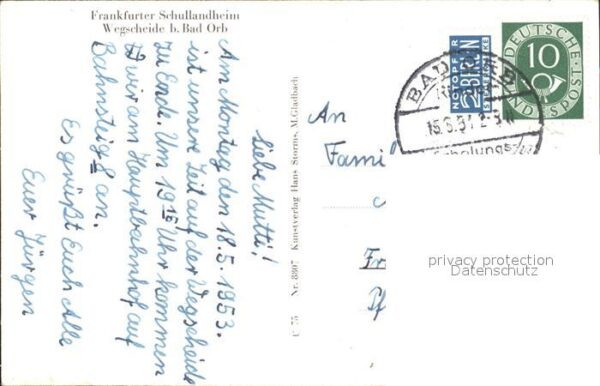 Frankfurter Schullandheim
Wegscheide b. Bad Orb
Liebe Mutti!
Am Montag den 18.5.1953.
ist unsere Zeit auf der Wegscheide
zu Ende. Um 19 16 Uhr kommen
wir am Hauptbahnhof auf
Bahnsteig 8 an.
Es grüßt Euch Alle
Euer Jürgen
C 75 Nr. 8807 Kunstverlag Hans Storms, M.Gladbach
An
Famil
Fr
Pf
NOTOPFER
2 BERLIN
STEUERMARKE
DEUTSCHE
BUNDESPOST
10
BAD ORB
privacy protection
Datenschutz